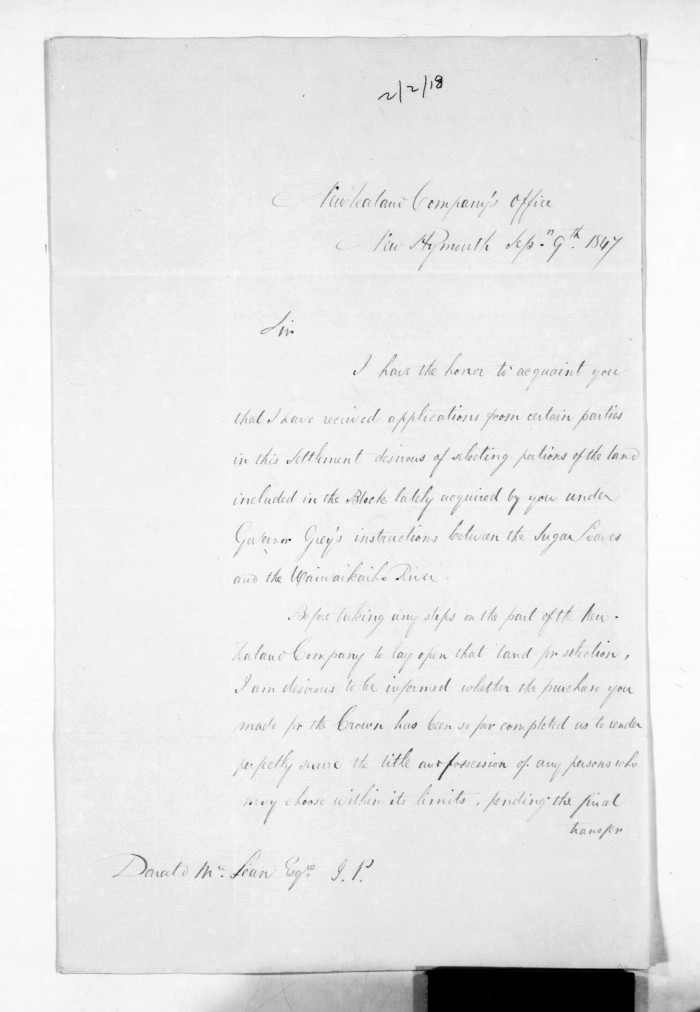 2/2/18
New Zealand Company's Office
New Plymouth Sepr. 9th. 1847
Sir
I have the honor to acquaint you
that I have received applications from certain parties
in this Settlement desirous of selecting portions of the land
included in the Block lately acquired by you under
Governor Grey's instructions between the Sugar Loaves
and the Waiwaikaiho River.
Before taking any steps on the part of the New-
Zealand Company to lay open that land for selection,
I am desirous to be informed whether the purchase you
made for the Crown has been so far completed as to render
perfectly secure the title and possession of any persons who
may choose within its limits, pending the final
transfer
Donald Mc. Lean Esqre. J.P.